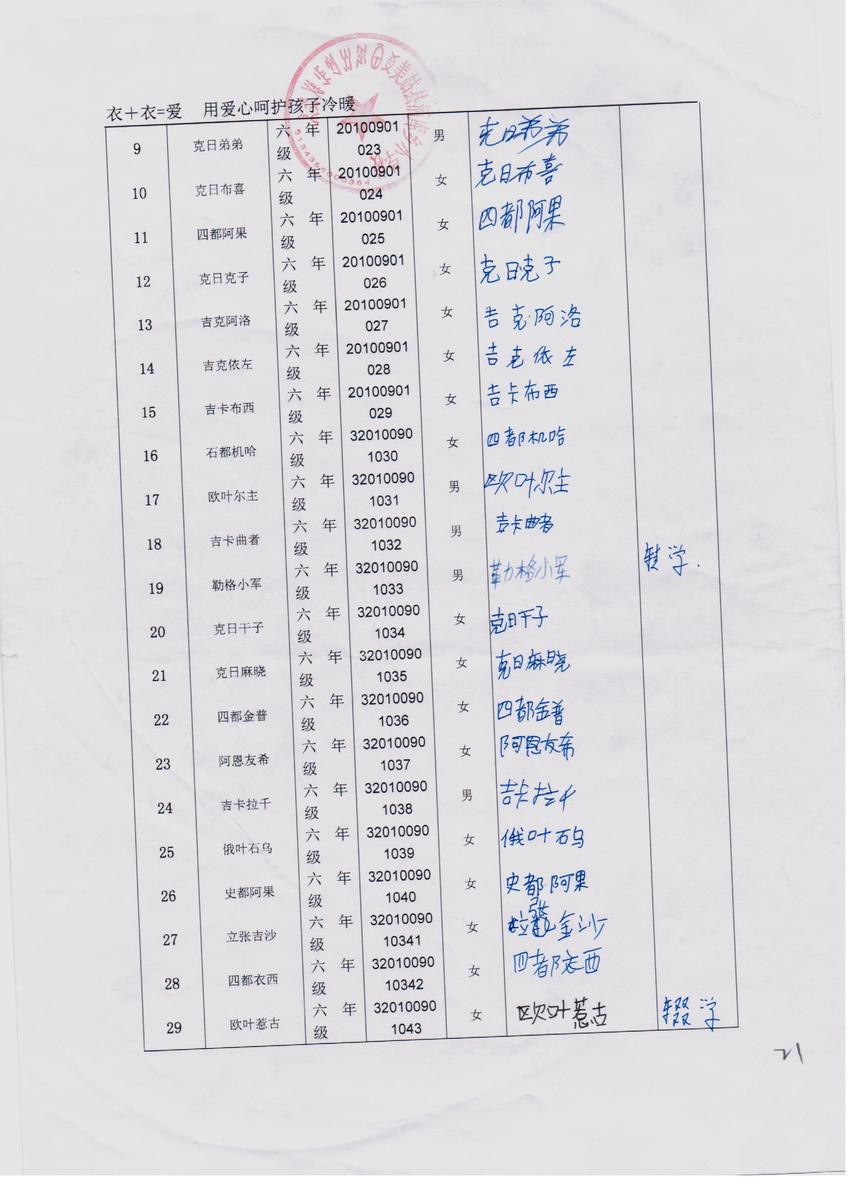 衣＋衣=爱 用爱心呵护孩子冷暖
9 克日弟弟 六年级 20100901023 男 克日弟弟
10 克日布喜 六年级 20100901024 女 克日布喜
11 四都阿果 六年级 20100901025 女 四都阿果
12 克日克子 六年级 20100901026 女 克日克子
13 吉克阿洛 六年级 20100901027 女 吉克阿洛
14 吉克依左 六年级 20100901028 女 吉克依左
15 吉卡布西 六年级 20100901029 女 吉卡布西
16 石都机哈 六年级 320100901030 女 四都机哈
17 欧叶尔主 六年级 320100901031 男 欧叶尔主
18 吉卡曲者 六年级 320100901032 男 吉卡曲者
19 勒格小军 六年级 320100901033 男 勒格小军 转学.
20 克日干子 六年级 320100901034 女 克日干子
21 克日麻晓 六年级 320100901035 女 克日麻晓
22 四都金普 六年级 320100901036 女 四都金普
23 阿恩友希 六年级 320100901037 女 阿恩友希
24 吉卡拉千 六年级 320100901038 男 吉卡拉千
25 俄叶石乌 六年级 320100901039 女 俄叶石乌
26 史都阿果 六年级 320100901040 女 史都阿果
27 立张吉沙 六年级 3201009010341 女 拉张金沙
28 四都衣西 六年级 3201009010342 女 四都衣西
29 欧叶惹古 六年级 320100901043 女 欧叶惹古 辍学
21